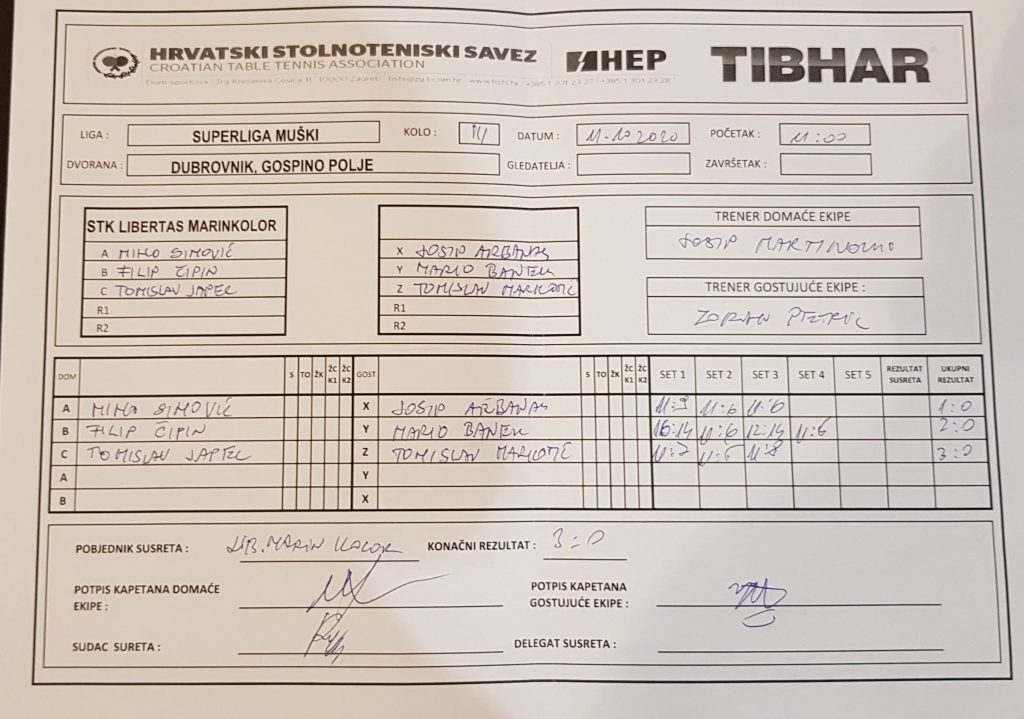 HRVATSKI STOLNOTENISKI SAVEZ
CROATIAN TABLE TENNIS ASSOCIATION
HEP
TIBHAR
LIGA : SUPERLIGA MUŠKI KOLO : IV DATUM : 11.10.2020 POČETAK : 11:00
DVORANA : DUBROVNIK, GOSPINO POLJE GLEDATELJA : ZAVRŠETAK :
STK LIBERTAS MARINKOLOR
A MIHO SIMOVIĆ
B FILIP ČIPIN
C TOMISLAV JAPEC
R1
R2
X JOSIP ARBANAS
Y MARIO BANEK
Z TOMISLAV MARKOTIĆ
R1
R2
TRENER DOMAĆE EKIPE
JOSIP
TRENER GOSTUJUĆE EKIPE :
ZORAN
DOM S TO ŽK ŽC K1 ŽC K2 GOST S TO ŽK ŽC K1 ŽC K2 SET 1 SET 2 SET 3 SET 4 SET 5 REZULTAT SUSRETA UKUPNI REZULTAT
A MIHO SIMOVIĆ X JOSIP ARBANAS 11:9 11:6 11:6 1:0
B FILIP ČIPIN Y MARIO BANEK 16:14 11:6 12:14 11:6 2:0
C TOMISLAV JAPEC Z TOMISLAV MARKOTIĆ 11:7 11:5 11:8 3:0
A Y
B X
POBJEDNIK SUSRETA : LIB. MARIN KOLOR KONAČNI REZULTAT : 3:0
POTPIS KAPETANA DOMAĆE EKIPE :
POTPIS KAPETANA GOSTUJUĆE EKIPE :
SUDAC SURETA : DELEGAT SUSRETA :